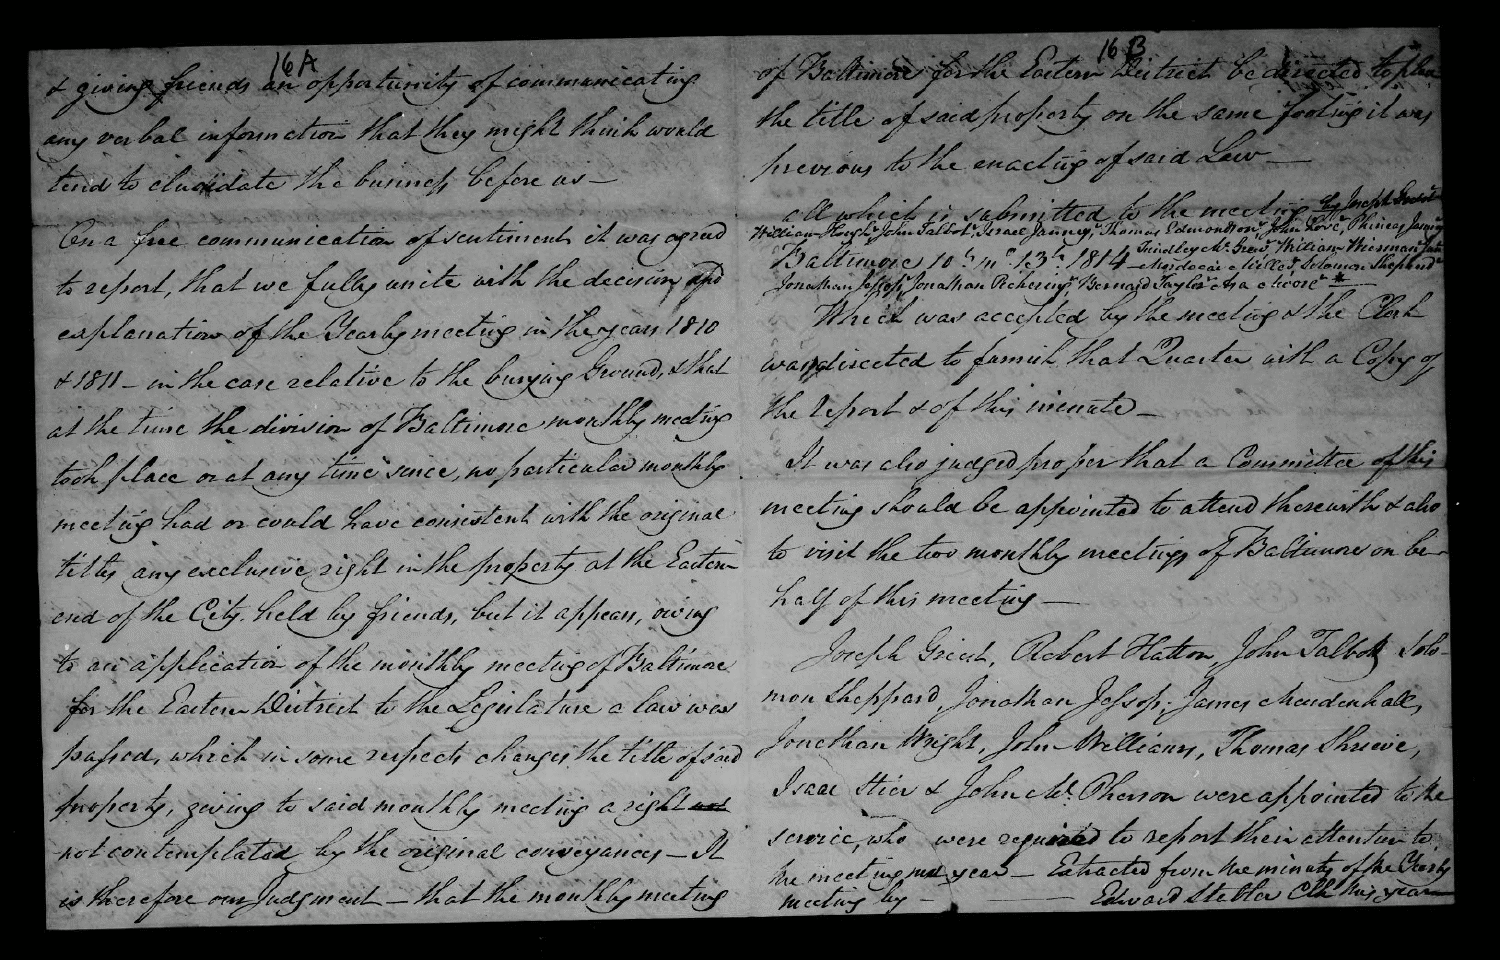 16A
& giving friends an opportunity of communicating
any verbal information that they might think would
tend to elucidate the business before us —
On a free communication of sentiment it was agreed
to report, that we fully unite with the decision and
explanation of the Yearly meeting in the years 1810
& 1811 — in the case relative to the burying Ground, & that
at the time the division of Baltimore monthly meeting
took place or at any time since, no particular monthly
meeting had or could have consistent with the original
titles any exclusive right in the property at the Eastern
end of the City held by friends, but it appears, owing
to an application of the monthly meeting of Baltimore
for the Eastern District to the Legislature a law was
passed, which in some respects changes the title of said
property, giving to said monthly meeting a right not
not contemplated by the original conveyances — It
is therefore our Judgment — that the monthly meeting
16 B
of Baltimore for the Eastern District be directed to place
the title of said property on the same footing it was
previous to the enacting of said Law —
all which is submitted to the meeting by Joseph
William Hough, John Talbot, Israel Janney, Thomas Edmondson, John Love, Phineas Janney
Baltimore 10th mo 13th 1814 — Findley Mc Grew, William Wierman
Mordecai Miller, Solomon Shepherd
Jonathan Jessop, Jonathan Pickering, Bernard Taylor, Asa Moore *
Which was accepted by the meeting & the Clerk
was directed to furnish that Quarter with a Copy of
the report & of this minute —
It was also judged proper that a Committee of this
meeting should be appointed to attend therewith & also
to visit the two monthly meetings of Baltimore on be-
half of this meeting —
Joseph Griest, Robert Hatton, John Talbott, Solo-
mon Sheppard, Jonathan Jessop, James Mendenhall,
Jonathan Wright, John Williams, Thomas Shrieve,
Isaac Stier & John Mc. Pherson were appointed to the
service, who were required to report their attention to
the meeting next year — Extracted from the minutes of the Yearly
meeting by — Edward Stabler Clk this year